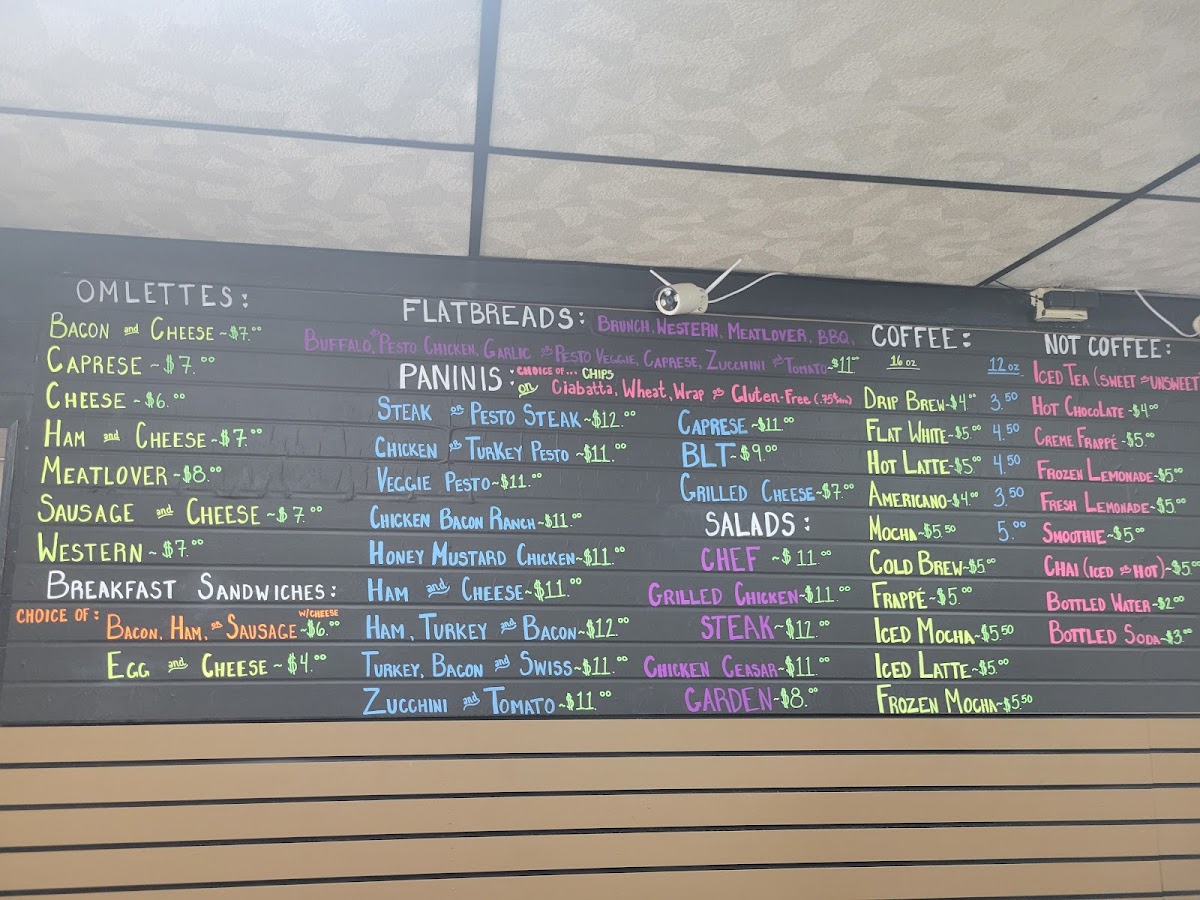 OMLETTES:
BACON and CHEESE ~ $7.00
CAPRESE ~ $7.00
CHEESE ~ $6.00
HAM and CHEESE ~ $7.00
MEATLOVER ~ $8.00
SAUSAGE and CHEESE ~ $7.00
WESTERN ~ $7.00
BREAKFAST SANDWICHES:
CHOICE OF: BACON, HAM, or SAUSAGE W/CHEESE ~ $6.00
EGG and CHEESE ~ $4.00
FLATBREADS: BRUNCH, WESTERN, MEATLOVER, BBQ,
BUFFALO, PESTO CHICKEN, GARLIC PESTO VEGGIE, CAPRESE, ZUCCHINI and TOMATO ~ $11.00
PANINIS: CHOICE OF... CHIPS
on Ciabatta, Wheat, Wrap or Gluten-Free
STEAK or PESTO STEAK ~ $12.00
CHICKEN or TURKEY PESTO ~ $11.00
VEGGIE PESTO ~ $11.00
CHICKEN BACON RANCH ~ $11.00
HONEY MUSTARD CHICKEN ~ $11.00
HAM and CHEESE ~ $11.00
HAM, TURKEY and BACON ~ $12.00
TURKEY, BACON and SWISS ~ $11.00
ZUCCHINI and TOMATO ~ $11.00
CAPRESE ~ $11.00
BLT ~ $9.00
GRILLED CHEESE ~ $7.00
SALADS:
CHEF ~ $11.00
GRILLED CHICKEN ~ $11.00
STEAK ~ $12.00
CHICKEN CEASAR ~ $11.00
GARDEN ~ $8.00
COFFEE:
16 oz 12 oz
DRIP BREW ~ $4.00 3.50
FLAT WHITE ~ $5.00 4.50
HOT LATTE ~ $5.00 4.50
AMERICANO ~ $4.00 3.50
MOCHA ~ $5.50 5.00
COLD BREW ~ $5.00
FRAPPÉ ~ $5.00
ICED MOCHA ~ $5.50
ICED LATTE ~ $5.00
FROZEN MOCHA ~ $5.50
NOT COFFEE:
ICED TEA (SWEET or UNSWEET
HOT CHOCOLATE ~ $4.00
CREME FRAPPÉ ~ $5.00
FROZEN LEMONADE ~ $5.00
FRESH LEMONADE ~ $5.00
SMOOTHIE ~ $5.00
CHAI (ICED or HOT) ~ $5.00
BOTTLED WATER ~ $2.00
BOTTLED SODA ~ $3.00